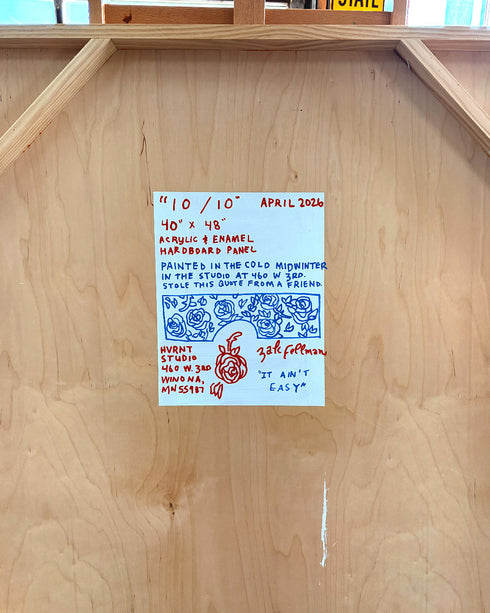 STATE
"10 / 10" APRIL 2026
40" x 48"
ACRYLIC & ENAMEL
HARDBOARD PANEL
PAINTED IN THE COLD MIDWINTER
IN THE STUDIO AT 460 W 3RD.
STOLE THIS QUOTE FROM A FRIEND.
HVRNT
STUDIO
460 W. 3RD
WINONA,
MN 55987
Zak Follman
"IT AIN'T
EASY"